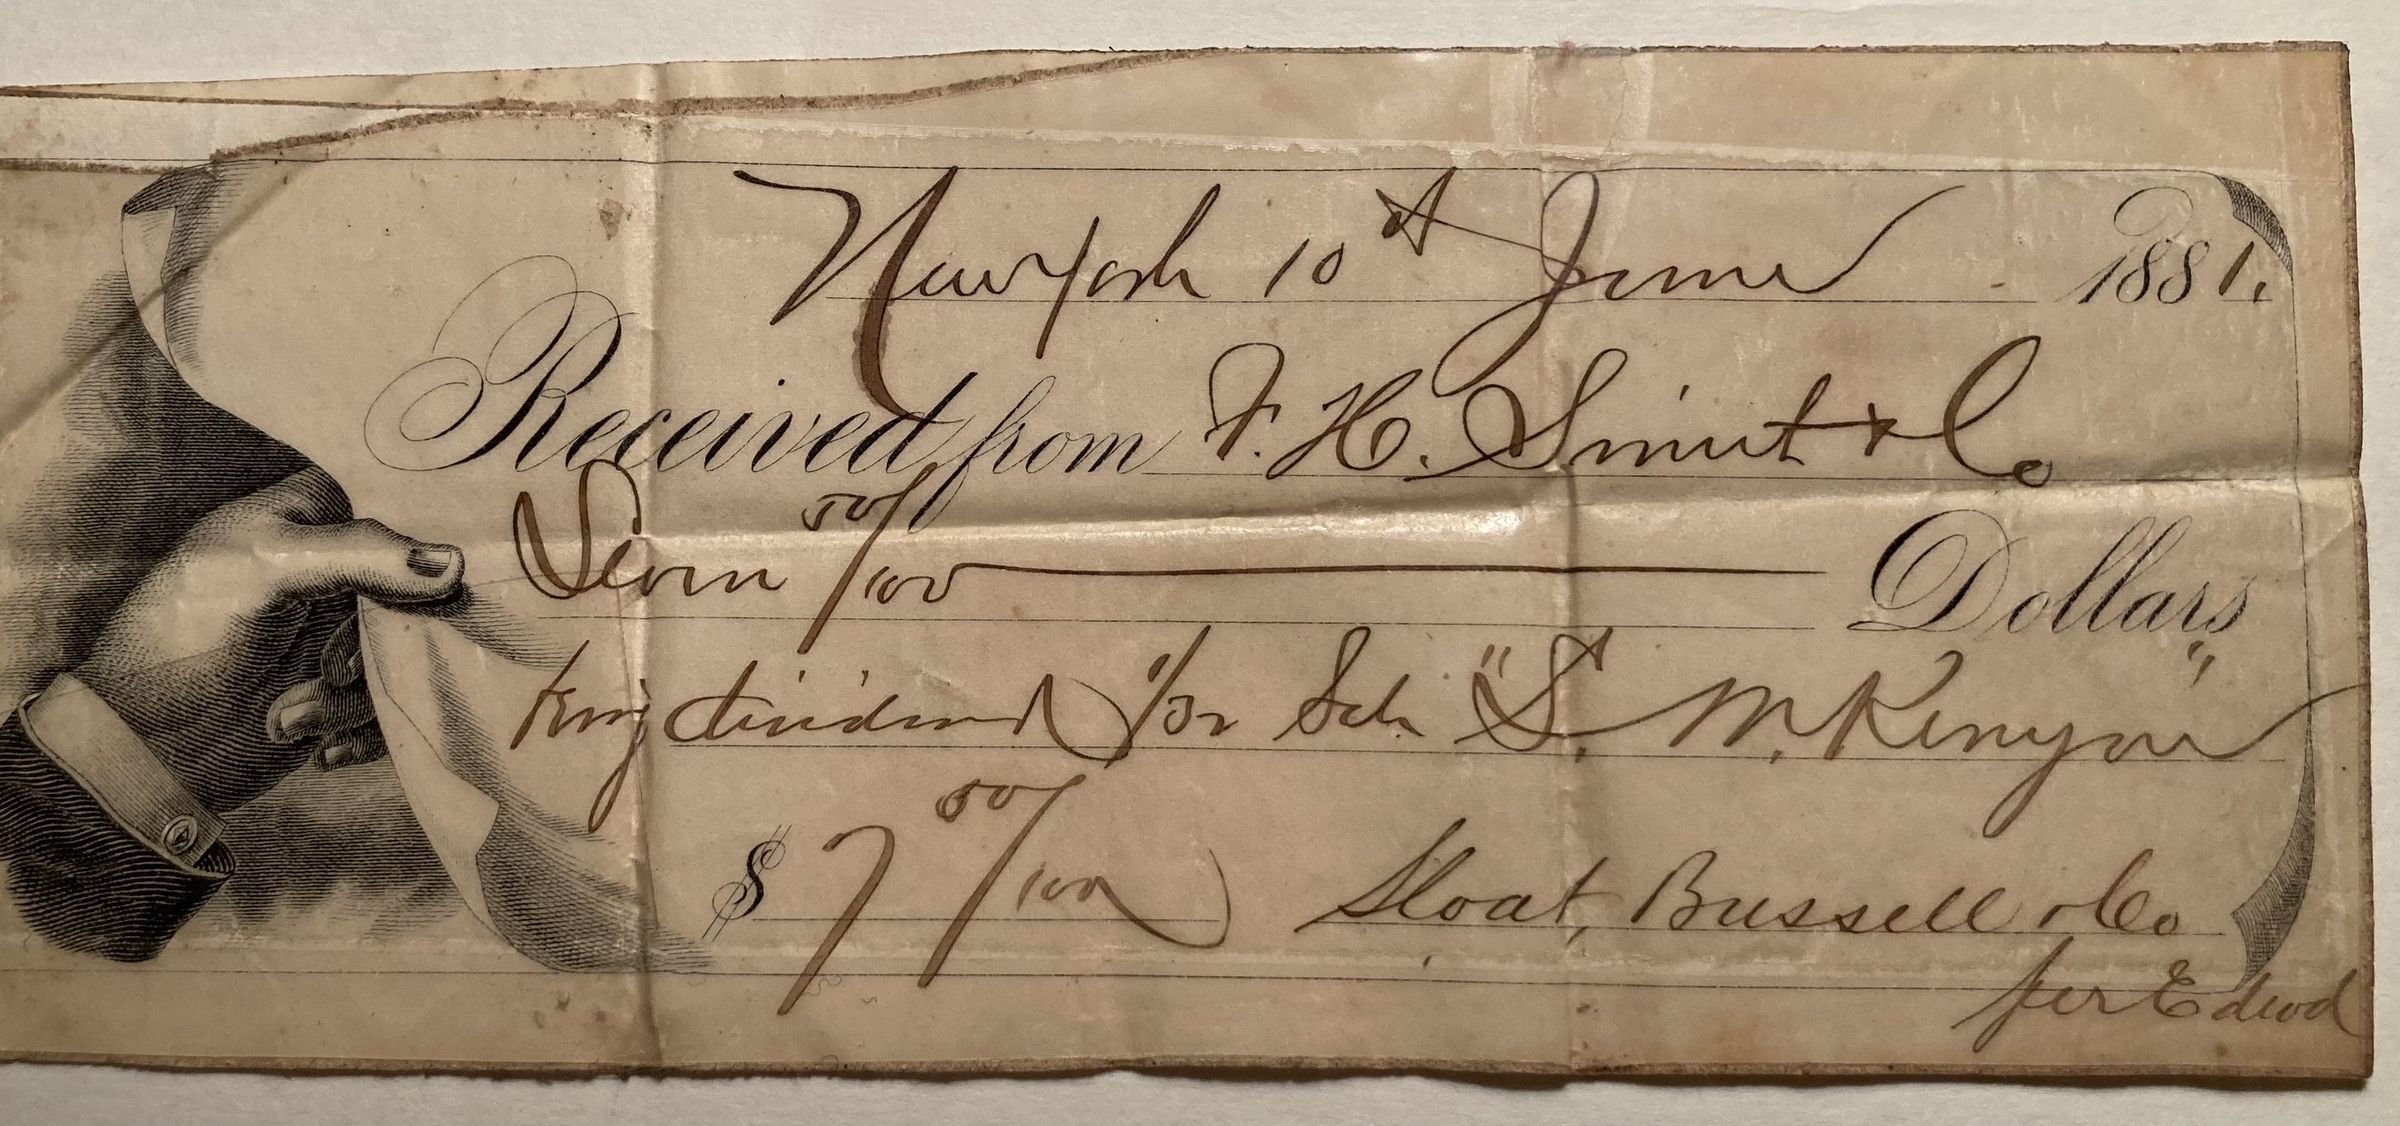 New York 10th June 1881.
Received from F. H. Smith & Co
Seven 50/100 Dollars
dividend 1/32 Sch "S. M. Kenyon"
$ 7 50/100 Sloat, Bussell & Co
per